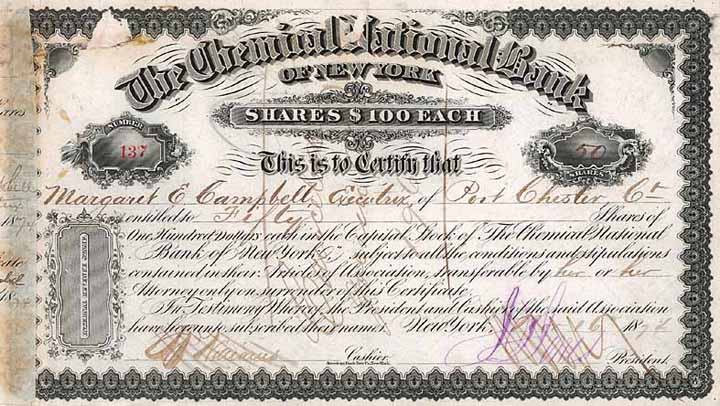 The Chemical National Bank
OF NEW YORK
SHARES $100 EACH
NUMBER
137
50
SHARES
This is to Certify that
Margaret E. Campbell, Executrix of Port Chester Ct
entitled to Fifty Shares of
One Hundred Dollars each in the Capital Stock of The Chemical National
Bank of New York, subject to all the conditions and stipulations
contained in their Articles of Association, transferable by her or her
Attorney only on surrender of this Certificate.
In Testimony Whereof the President and Cashier of the said Association
have hereunto subscribed their names. New York, 16 187
Cashier
President